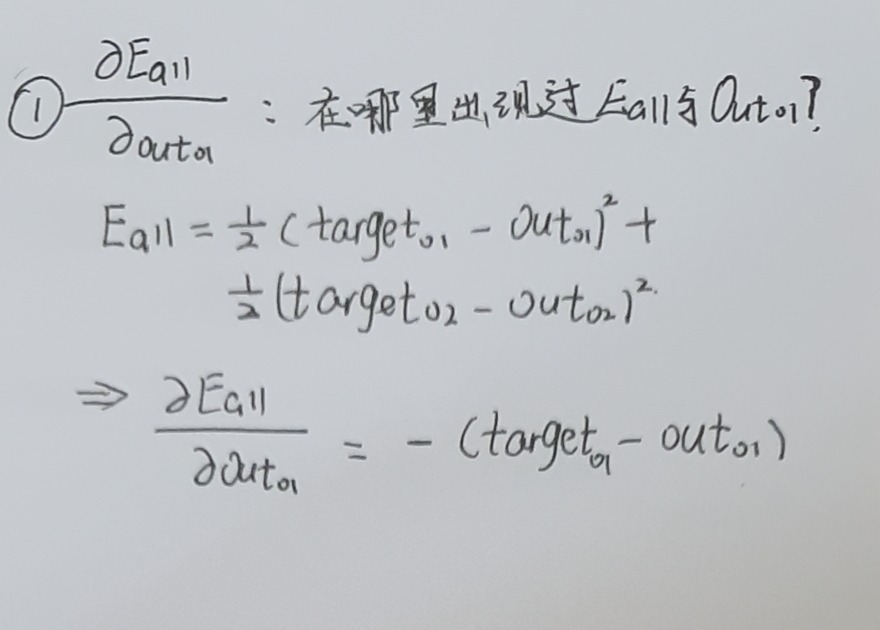 ① ∂Eall / ∂outo1 : 在哪里出现过 Eall与 Outo1?
Eall = 1/2 (targeto1 - Outo1)² +
1/2 (targeto2 - outo2)².
⇒ ∂Eall / ∂Outo1 = - (targeto1 - outo1)